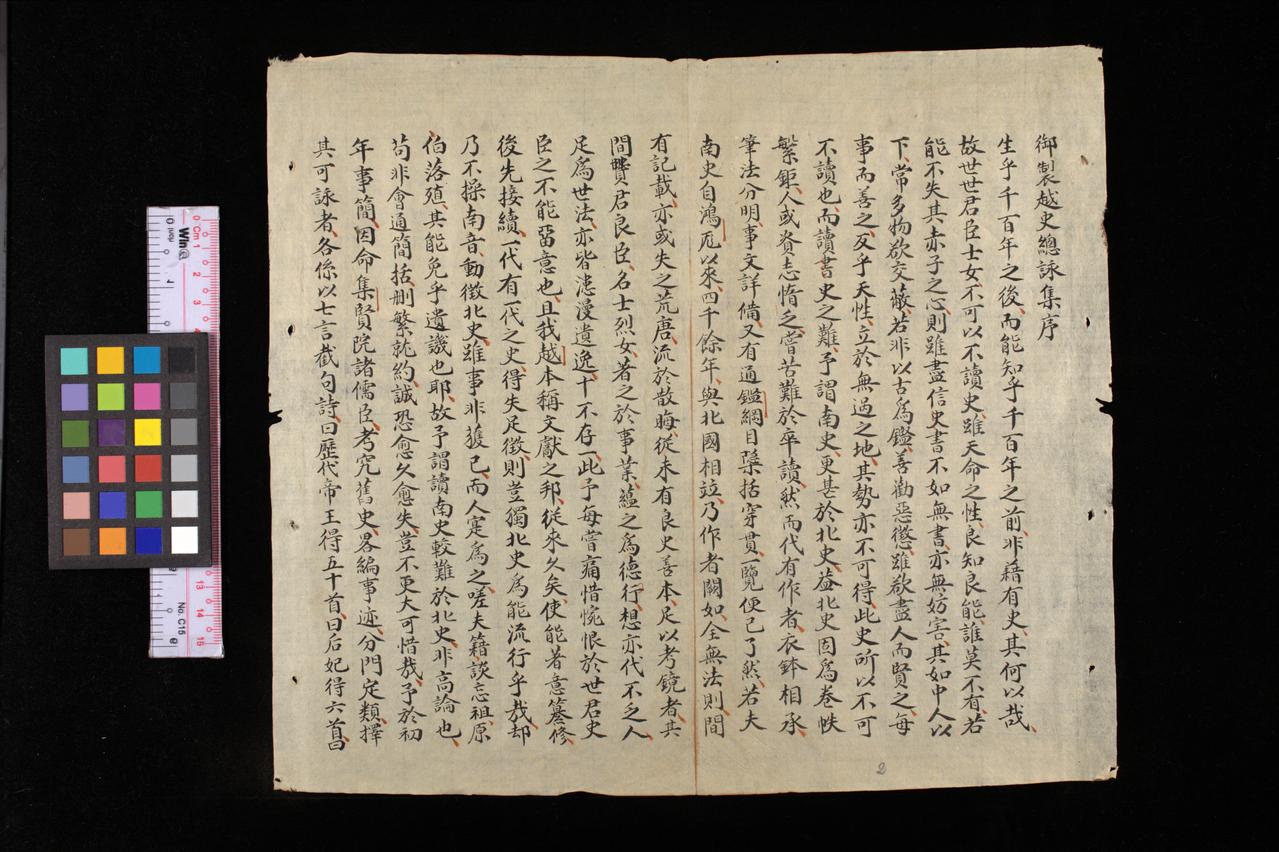 御製越史總詠集序
生乎千百年之後而能知乎千百年之前非藉有史其何以哉
故世世君臣士女不可以不讀史雖天命之性良知良能誰莫不有若
能不失其赤子之心則雖盡信史書不如無書亦無妨害其如中人以
下常多物欲交蔽若非以古為鑑善勸惡懲雖欲盡人而賢之每
事而善之反乎天性立於無過之地其勢亦不可得此史所以不可
不讀也而讀書史之難予謂南史更甚於北史葢北史固為卷帙
繁鉅人或費志惰之嘗苦難於卒讀然而代有作者衣鉢相承
筆法分明事文詳備又有通鑑綱目櫽括穿貫一覽便已了然若夫
南史自鴻厖以來四千餘年與北國相竝乃作者闕如全無法則間
有記載亦或失之荒唐流於散晦從未有良史善本足以考鏡者其
間賢君良臣名士烈女著之於事業蘊之為德行想亦代不乏人
足為世法亦皆漶漫遺逸十不存一此予每嘗痛惜惋恨於世君史
臣之不能留意也且我越本稱文獻之邦從來久矣使能著意纂修
後先接續一代有一代之史得失足徵則豈獨北史為能流行乎哉却
乃不操南音動徵北史雖事非獲已而人寔為之嗟夫籍談忘祖原
伯落殖其能免乎遺譏也耶故予謂讀南史較難於北史非高論也
苟非會通簡括刪繁就約誠恐愈久愈失豈不更大可惜哉予於初
年事簡因命集賢院諸儒臣考究舊史畧編事迹分門定類擇
其可詠者各係以七言截句詩曰歷代帝王得五十首曰后妃得六首曰
2
cm 1 2 3 4 13 14 15
No. C15